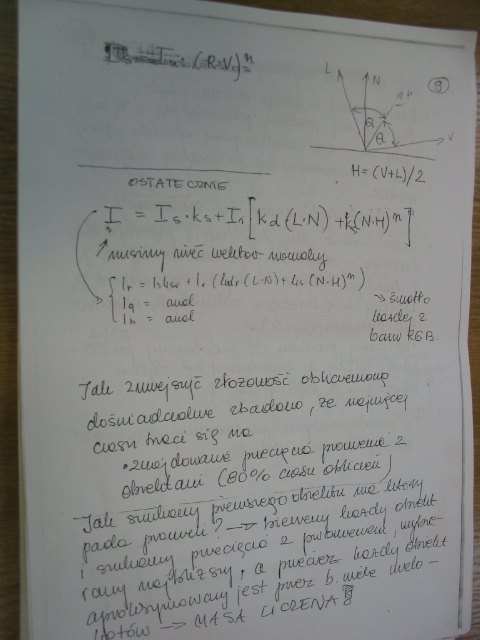 (R·V)ⁿ
9
L
N
H
V
θ
θ
H = (V+L)/2
OSTATECZNIE
I = Is·ks + Ii [kd (L·N) + ks(N·H)ⁿ]
musimy mieć wektor normalny
Ir =
Ig = anal
Ib = anal
światło
każdej z
barw RGB.
Jak zmniejszyć złożoność obliczeniową
doświadczalnie zbadano, że najwięcej
czasu traci się na
• znajdowanie przecięcia promienia z
obiektami (80% czasu obliczeń)
Jak szukamy pierwszego obiektu na który
pada promień? → bierzemy każdy obiekt
i szukamy przecięcia z promieniem, wybie-
ramy najbliższy, a przecież każdy obiekt
aproksymowany jest przez b. wiele wielo-
kątów → MASA LICZENIA!